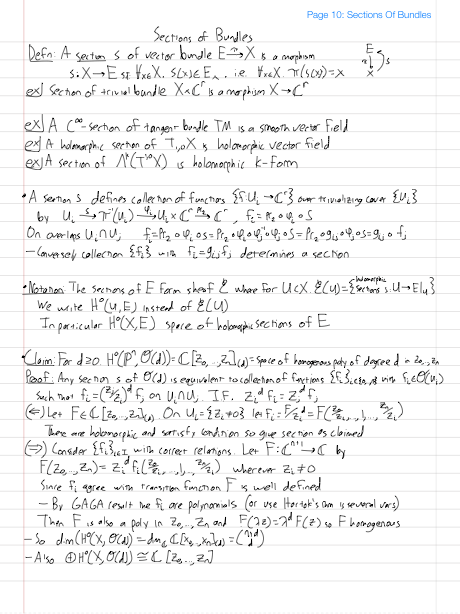 Page 10: Sections Of Bundles
Sections of Bundles
Defn: A section s of vector bundle E →π X is a morphism
s: X → E st ∀x∈X. s(x)∈E_x, i.e. ∀x∈X. π(s(x)) = x
E
π↓ ↑s
X
ex] Section of trivial bundle X×ℂ^r is a morphism X → ℂ^r
ex] A C^∞-section of tangent bundle TM is a smooth vector field
ex] A holomorphic section of T_{1,0}X is holomorphic vector field
ex] A section of Λ^k(T^{1,0}X) is holomorphic k-form
• A section s defines collection of functions {f_i: U_i → ℂ^r} over trivializing cover {U_i}
by U_i →s π^{-1}(U_i) →φ_i U_i × ℂ^r →pr_2 ℂ^r, f_i = pr_2∘φ_i∘s
On overlaps U_i∩U_j f_i = pr_2∘φ_i∘s = pr_2∘φ_i∘φ_j^{-1}∘φ_j∘s = pr_2∘g_{ij}∘φ_j∘s = g_{ij}∘f_j
- Conversely collection {f_i} with f_i = g_{ij}f_j determines a section
• Notation: The sections of E form sheaf ℰ where for U⊂X ℰ(U) = {holomorphic sections s: U → E|_U}
We write H^0(U,E) instead of ℰ(U)
In particular H^0(X,E) space of holomorphic sections of E
• Claim: For d≥0. H^0(ℙ^n, O(d)) = ℂ[z_0,...,z_n]_(d) = space of homogenous poly of degree d in z_0,..,z_n
Proof: Any section s of O(d) is equivalent to collection of functions {f_i} with f_i∈O(U_i)
such that f_i = (z_j/z_i)^d f_j on U_i∩U_j. I.F. z_i^d f_i = z_j^d f_j
(⇐) Let F∈ℂ[z_0,..,z_n]_(d). On U_i = {z_i≠0} let f_i = F/z_i^d = F(z_0/z_i,..,1,..,z_n/z_i)
These are holomorphic and satisfy condition so give section as claimed
(⇒) Consider {f_i}_{i∈I} with correct relations. Let F: ℂ^{n+1} → ℂ by
F(z_0,..,z_n) = z_i^d f_i(z_0/z_i,..,1,..,z_n/z_i) wherever z_i≠0
Since f_i agree with transition function F is well defined
- By GAGA result the f_i are polynomials (or use Hartok's thm is several vars)
Then F is also a poly in z_0,..,z_n and F(λz) = λ^d F(z) so F homogenous
- So dim(H^0(X,O(d))) = dim_ℂ ℂ[x_0,..,x_n]_(d) = (n+d d)
- Also ⊕H^0(X,O(d)) ≅ ℂ[z_0,..,z_n]